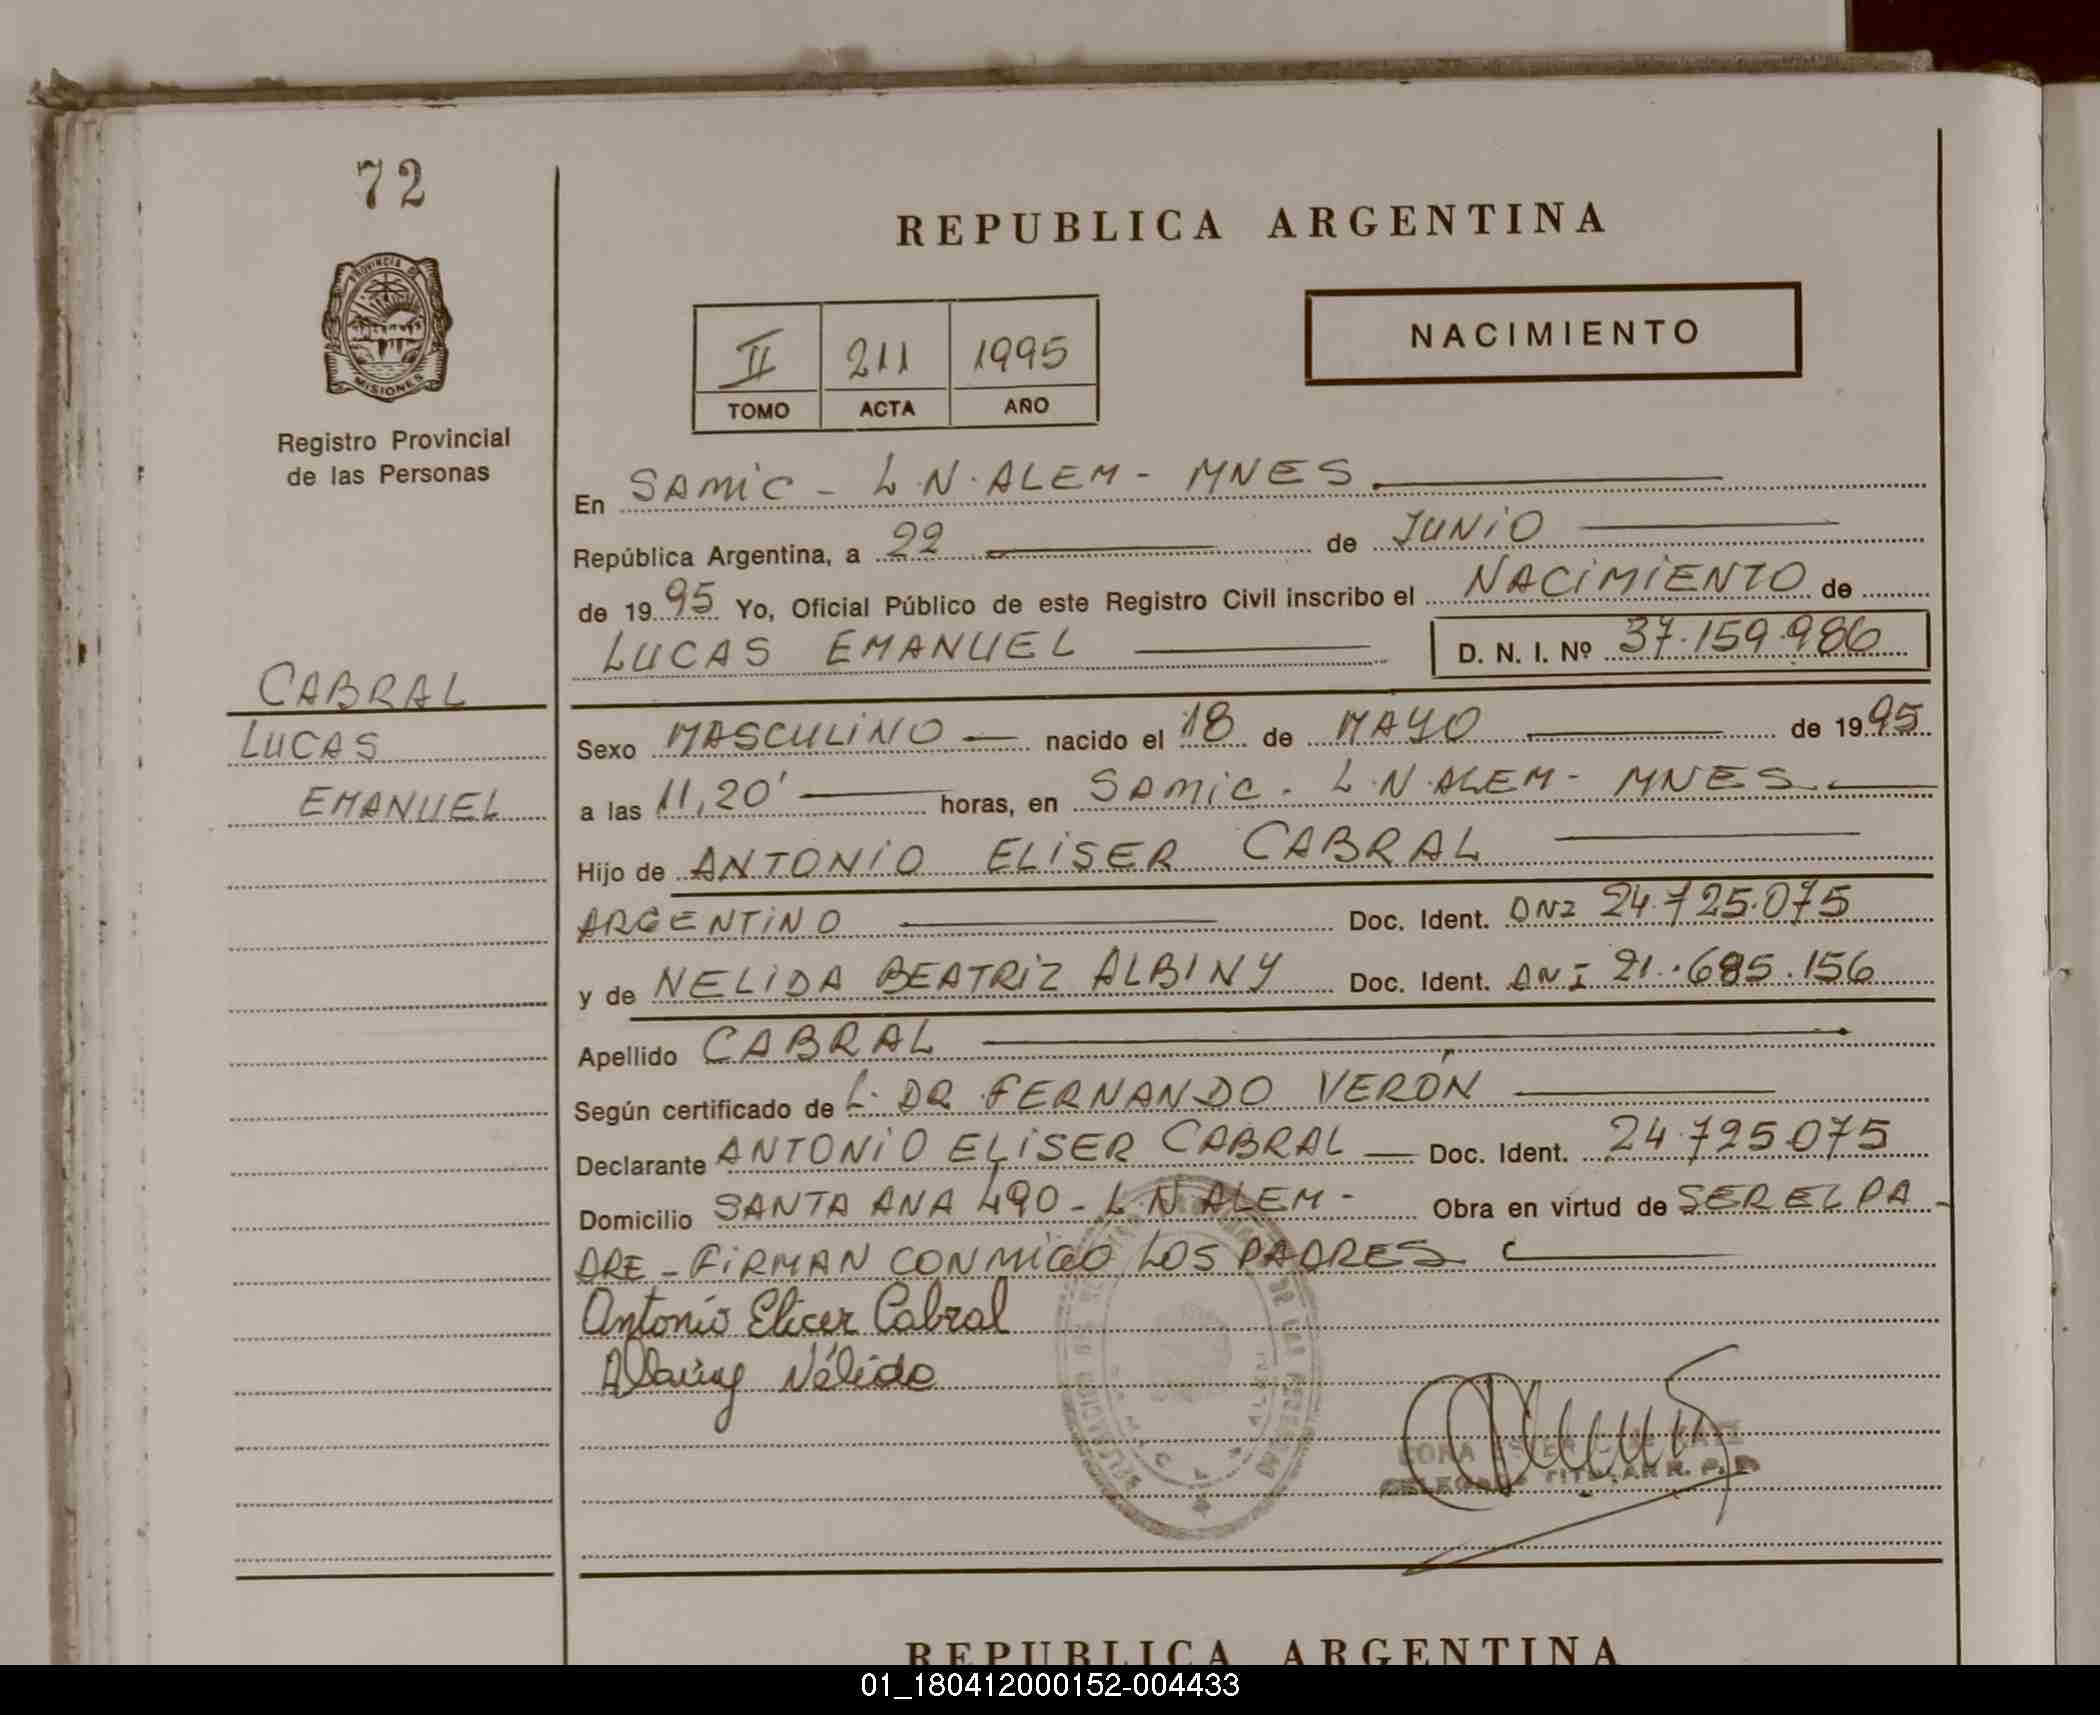 72
REPUBLICA ARGENTINA
PROVINCIA DE
MISIONES
Registro Provincial
de las Personas
II 211 1995
TOMO ACTA AÑO
NACIMIENTO
En SAMIC - L.N. ALEM - MNES
República Argentina, a 22 de JUNIO
de 1995 Yo, Oficial Público de este Registro Civil inscribo el NACIMIENTO de
LUCAS EMANUEL D. N. I. Nº 37.159.986
CABRAL
LUCAS
EMANUEL
Sexo MASCULINO nacido el 18 de MAYO de 1995
a las 11,20' horas, en SAMIC - L.N. ALEM - MNES
Hijo de ANTONIO ELISER CABRAL
ARGENTINO Doc. Ident. DNI 24.725.075
y de NELIDA BEATRIZ ALBINY Doc. Ident. DNI 21.685.156
Apellido CABRAL
Según certificado de L. DR FERNANDO VERÓN
Declarante ANTONIO ELISER CABRAL Doc. Ident. 24.725.075
Domicilio SANTA ANA 490 - L N ALEM - Obra en virtud de SER EL PA-
DRE - FIRMAN CONMIGO LOS PADRES
Antonio Elicer Cabral
Nélida
TITULAR R. P. P.
REPUBLICA ARGENTINA
01_180412000152-004433